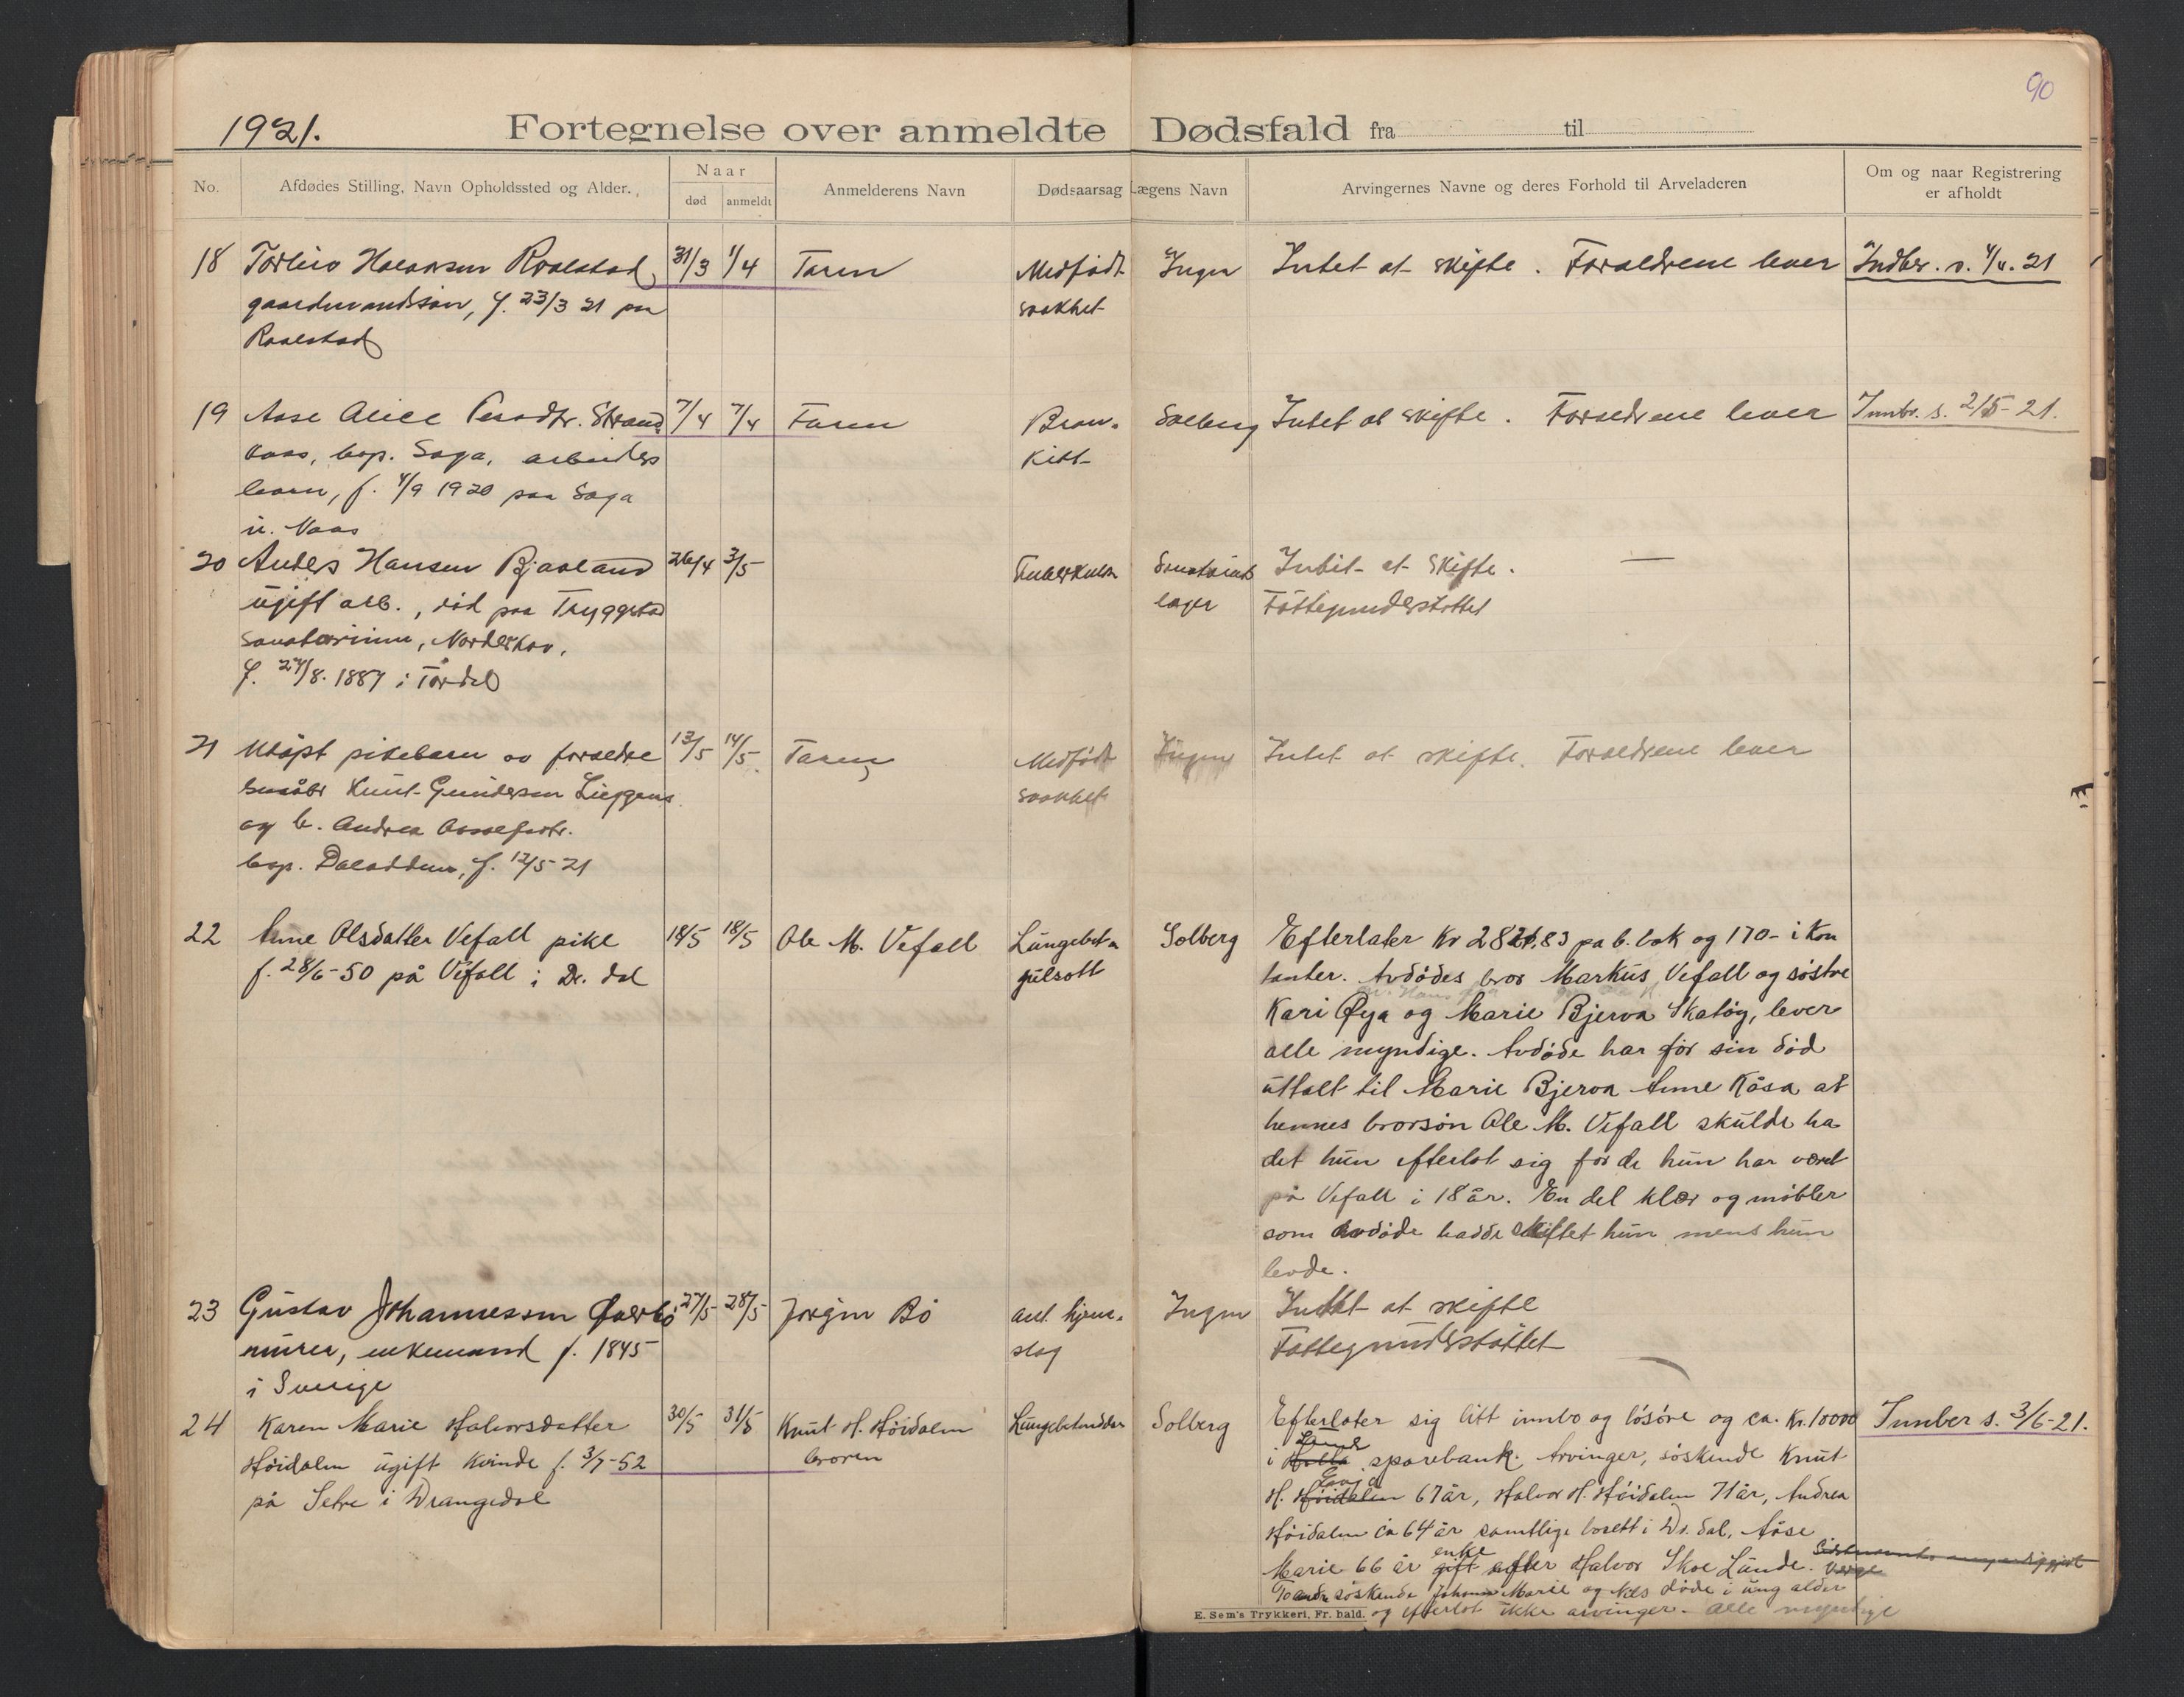 90
1921.
Fortegnelse over anmeldte Dødsfald fra til
No.
Afdødes Stilling, Navn Opholdssted og Alder.
Naar
død
anmeldt
Anmelderens Navn
Dødsaarsag
Lægens Navn
Arvingernes Navne og deres Forhold til Arveladeren
Om og naar Registrering
er afholdt
18 Torleiv Roalstad 31/3 1/4 Faren Medfødt Ingen Intet at skifte. Forældrene lever Indber. s. 21
gaardmandssøn, f. 23/3 21 paa svakhet
Roalstad
19 Aase Alice Strand 7/4 7/4 Faren Bron- Solberg Intet at skifte. Forældrene lever Innbr. s. 2/5-21.
bop. Saga, arbeiders kitt
barn, f. /9 1920 paa Saga
u. Naas
20 Anders Hansen Bjaaland 26/4 3/5 Tuberkulose Intet at skifte. —
ugift arb., død paa Tryggstad læge Fattigunderstøttet
sanatorium, Norderhov,
f. /8. 1887 i Tørdal
21 Udøpt pikebarn av forældre 13/5 14/5 Faren Medfødt Ingen Intet at skifte. Forældrene lever
Knut Gundersen svakhet
og h. Andrea
bop. Daladden, f. 12/5 21
22 Anne Olsdatter Vefall pike 18/5 18/5 Ole M. Vefall Lungebet. Solberg Efterlater Kr ,83 pa b. bok og 170- i kon
f. 28/6-50 på Vefall i Dr. dal gulsott tanter. Avdødes bror Markus Vefall og søstre
Kari Øya og Marie Bjerva Skatøy, lever
alle myndige. Avdøde har før sin død
uttalt til Marie Bjerva Anne Kåsa at
hennes brorsøn Ole M. Vefall skulde ha
det hun efterlot sig for de hun har været
på Vefall i 18 år. En del klær og møbler
som avdøde hadde skiftet hun mens hun
levde.
23 Gustav Johannessen Øverbø 27/5 28/5 Jørgen Bø ant. hjerne- Ingen Intet at skifte
murer, enkemand f. 1845 slag Fattigunderstøttet
i Sverige
24 Karen Marie Halvorsdatter 30/5 31/5 Knut H. Høidalen Lungebetendelse Solberg Efterlater sig litt innbo og løsøre og ca. Kr. 10000 Innber s. 3/6-21.
Høidalen ugift kvinde f. 3/7-52 broren i sparebank. Arvinger, søskende Knut
på Setre i Drangedal H. Høidalen 67 år, Halvor H. Høidalen 71 år, Andrea
Høidalen ca 64 år samtlige bosett i Dr. dal, Åse
Marie 66 år enke gift efter Halvor Skoe Lunde.
andre søskende Johanne Marie og Nils døde i ung alder
og efterlot ikke arvinger. Alle myndige
E. Sem's Trykkeri, Fr. hald.